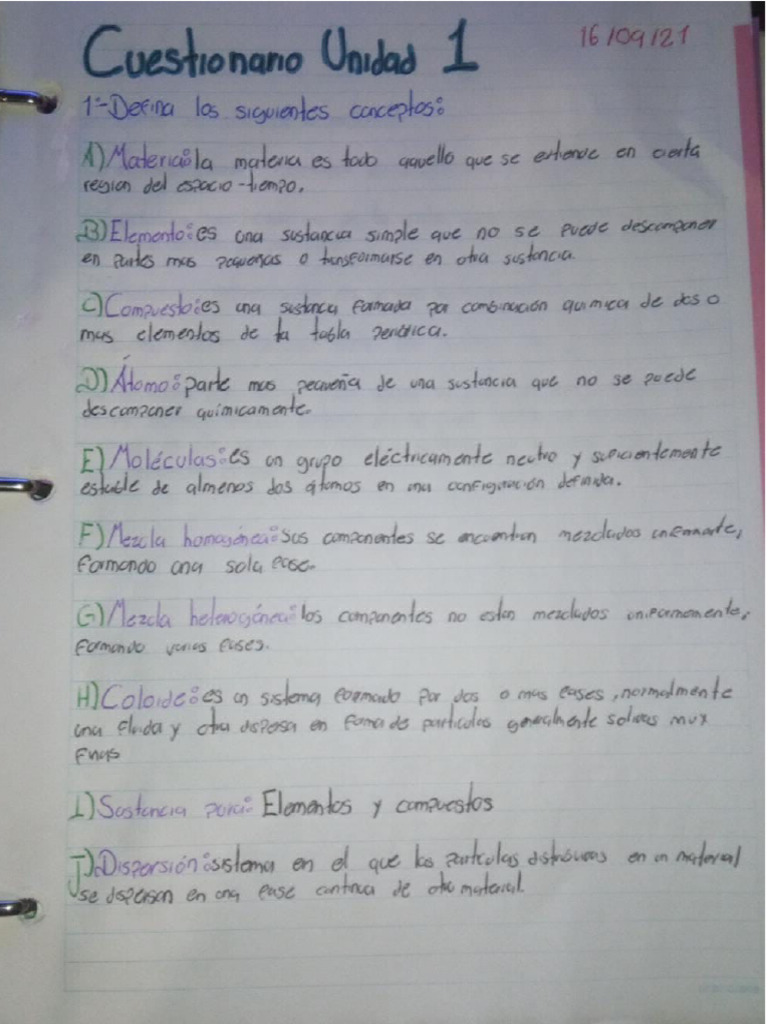 Cuestionario Unidad 1
16/09/21
1.-Defina los siguientes conceptos:
A) Materia: la materia es todo aquello que se extiende en cierta
region del espacio-tiempo.
B) Elemento: es una sustancia simple que no se puede descomponer
en partes mas pequeñas o transformarse en otra sustancia.
C) Compuesto: es una sustanca formada por combinación quimica de dos o
mas elementos de la tabla periódica.
D) Átomo: parte mas pequeña de una sustancia que no se puede
descomponer químicamente.
E) Moléculas: es un grupo eléctricamente neutro y suficientemente
estable de almenos dos átomos en una configuración definida.
F) Mezcla homogénea: sus componentes se encuentran mezclados
formando una sola fase.
G) Mezcla heterogénea: los componentes no estan mezclados uniformemente,
formando varias fases.
H) Coloide: es un sistema formado por dos o mas fases, normalmente
una fluida y otra dispersa en forma de particulas generalmente solidas muy
finas
I) Sustancia pura: Elementos y compuestos
J) Dispersión: sistema en el que las particulas distribuidas en un material
se dispersan en una fase continua de otro material.